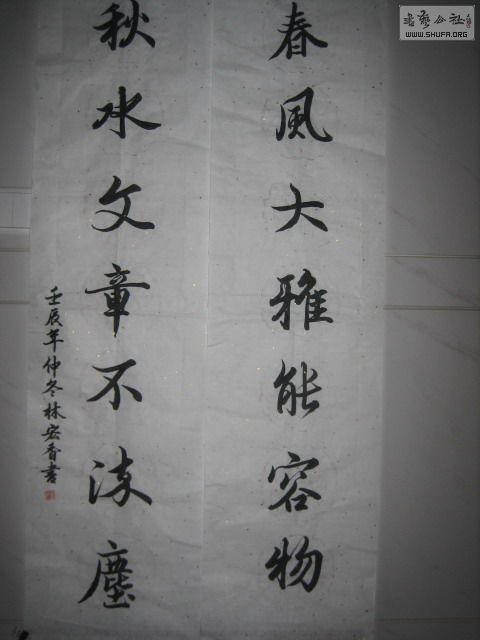 春風大雅能容物
秋水文章不染塵
壬辰年仲冬林宏香書
書藝公社
WWW.SHUFA.ORG